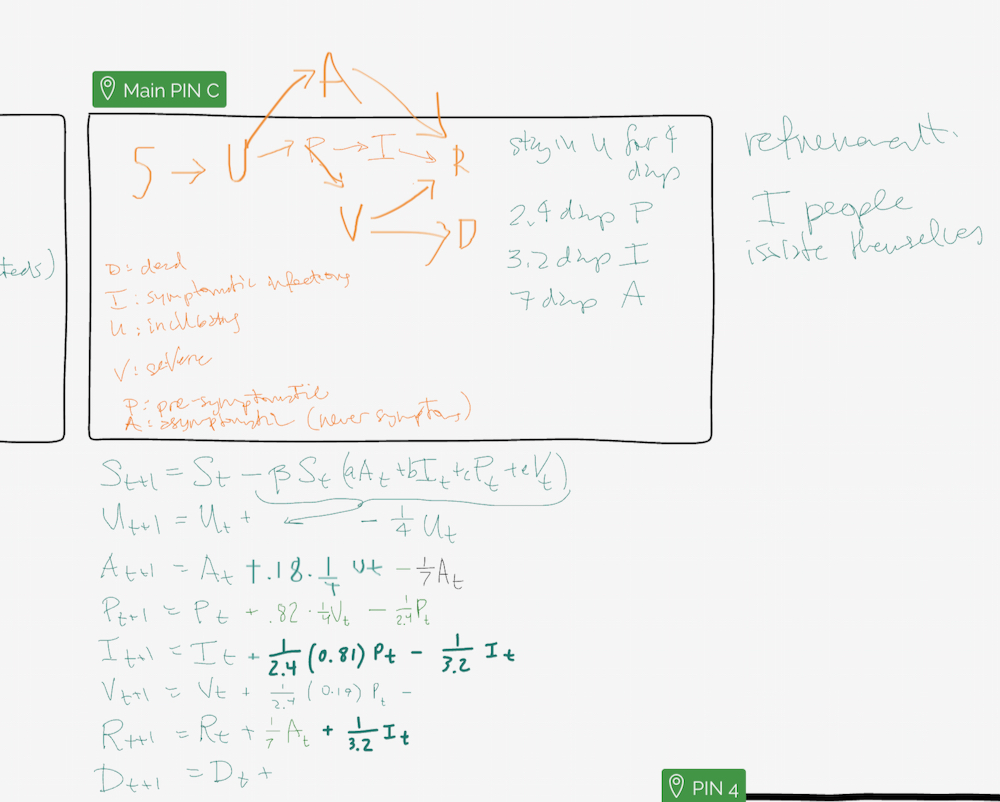 Main PIN C
A
S → U → R → I → R
V → D
D: dead
I: symptomatic infections
U: incubating
V: severe
P: pre-symptomatic
A: asymptomatic (never symptoms)
stay in U for 4
days
2.4 days P
3.2 days I
7 days A
refinement.
I people
isolate themselves
teds)
S_{t+1} = S_t - β S_t (aA_t + bI_t + cP_t + eV_t)
U_{t+1} = U_t + ← - 1/4 U_t
A_{t+1} = A_t + .18 · 1/4 U_t - 1/7 A_t
P_{t+1} = P_t + .82 · 1/4 U_t - 1/2.4 P_t
I_{t+1} = I_t + 1/2.4 (0.81) P_t - 1/3.2 I_t
V_{t+1} = V_t + 1/2.4 (0.19) P_t -
R_{t+1} = R_t + 1/7 A_t + 1/3.2 I_t
D_{t+1} = D_t +
PIN 4